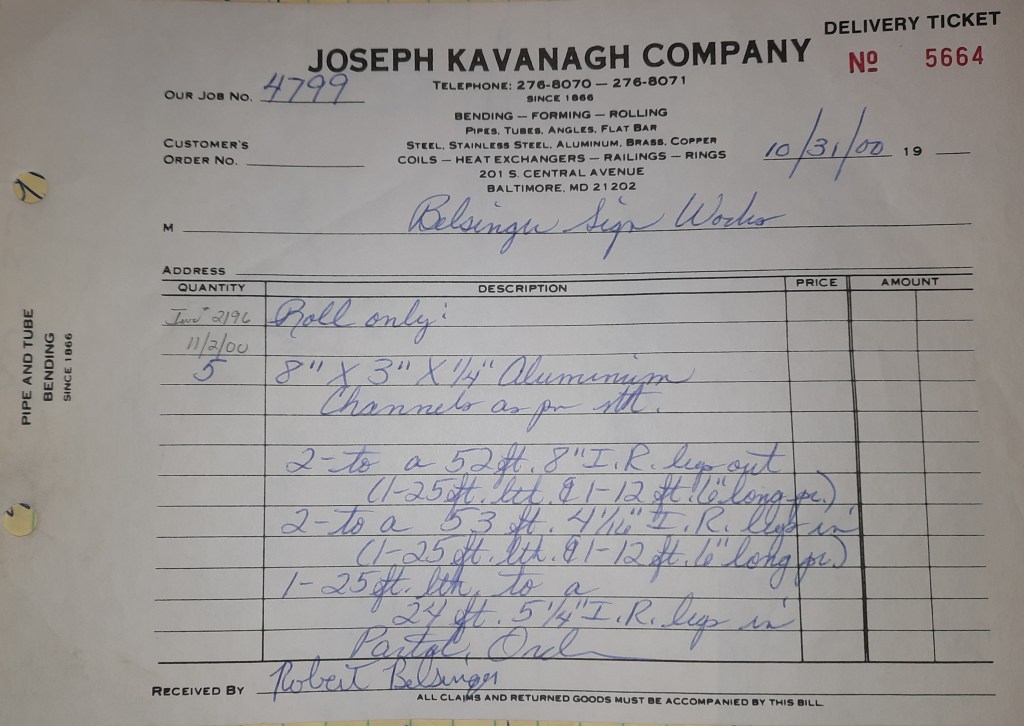 DELIVERY TICKET
JOSEPH KAVANAGH COMPANY
Nº 5664
TELEPHONE: 276-8070 — 276-8071
OUR JOB NO. 4799
SINCE 1866
BENDING — FORMING — ROLLING
PIPES, TUBES, ANGLES, FLAT BAR
CUSTOMER'S
ORDER NO.
STEEL, STAINLESS STEEL, ALUMINUM, BRASS, COPPER
COILS — HEAT EXCHANGERS — RAILINGS — RINGS
10/31/00 19
201 S. CENTRAL AVENUE
BALTIMORE, MD 21202
M Belsinger Sign Works
ADDRESS
QUANTITY DESCRIPTION PRICE AMOUNT
Inv# 2196 Roll only:
11/2/00
5 8" X 3" X 1/4" Aluminium
Channels as per
2-to a 52 ft. 8" I.R. legs out
(1-25 ft. lth. & 1-12 ft. 6" long pc.)
2-to a 53 ft. 4 1/16" I.R. legs in
(1-25 ft. lth. & 1-12 ft. 6" long pc.)
1-25 ft. lth. to a
24 ft. 5 1/4" I.R. legs in
RECEIVED BY Robert Belsinger
ALL CLAIMS AND RETURNED GOODS MUST BE ACCOMPANIED BY THIS BILL
PIPE AND TUBE
BENDING
SINCE 1866